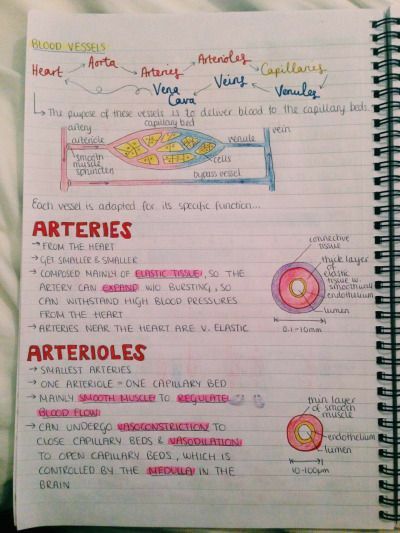 BLOOD VESSELS
Heart Aorta Arteries Arterioles Capillaries
Vena Cava Veins Venules
The purpose of these vessels is to deliver blood to the capillary beds.
artery capillary bed vein
arteriole venule
smooth muscle sphincters cells
bypass vessel
Each vessel is adapted for its specific function...
ARTERIES
→ FROM THE HEART
→ GET SMALLER & SMALLER
→ COMPOSED MAINLY OF ELASTIC TISSUE, SO THE
ARTERY CAN EXPAND W/O BURSTING, SO
CAN WITHSTAND HIGH BLOOD PRESSURES
FROM THE HEART
→ ARTERIES NEAR THE HEART ARE V. ELASTIC
connective
tissue
thick layer
of elastic
tissue w.
smooth
endothelium
lumen
0.1-10mm
ARTERIOLES
→ SMALLEST ARTERIES
→ ONE ARTERIOLE = ONE CAPILLARY BED
→ MAINLY SMOOTH MUSCLE TO REGULATE
BLOOD FLOW
→ CAN UNDERGO VASOCONSTRICTION TO
CLOSE CAPILLARY BEDS & VASODILATION
TO OPEN CAPILLARY BEDS, WHICH IS
CONTROLLED BY THE MEDULLA IN THE
BRAIN
thin layer
of smooth
muscle
endothelium
lumen
10-100μm